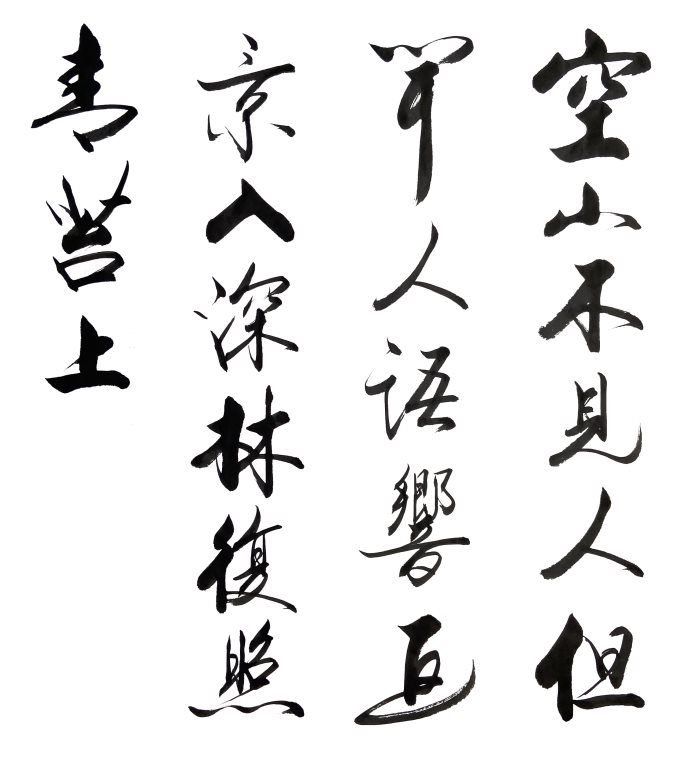 空山不見人但
聞人語響返
京入深林復照
青苔上